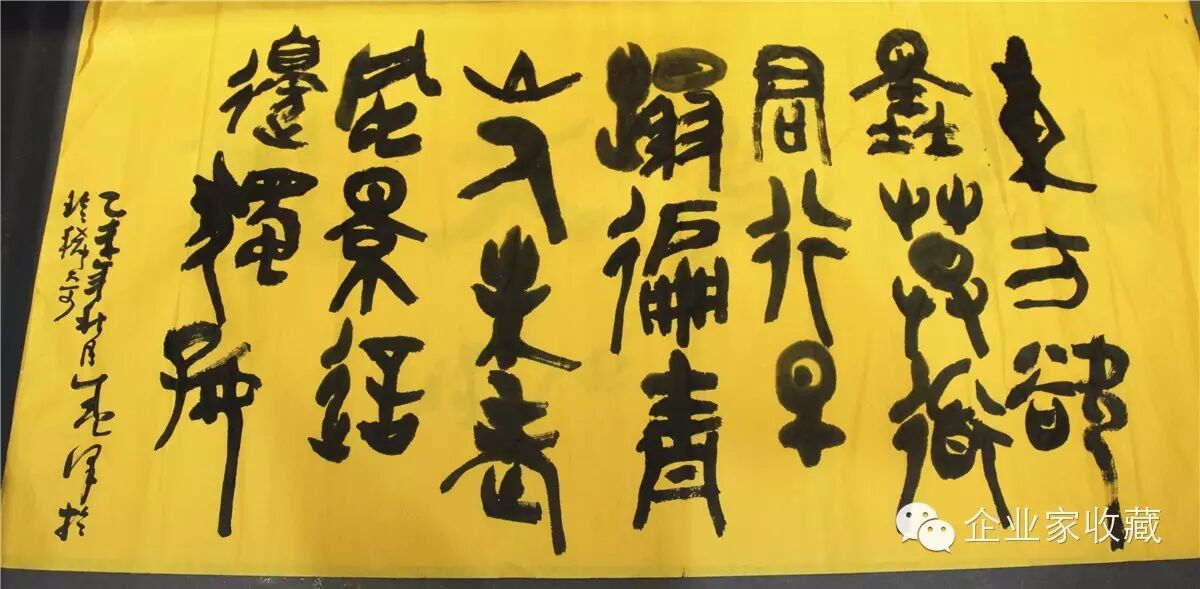 東方欲
曉莫道
君行早
蹋徧青
山人未老
風景這
邊獨好
乙未年秋月
企业家收藏